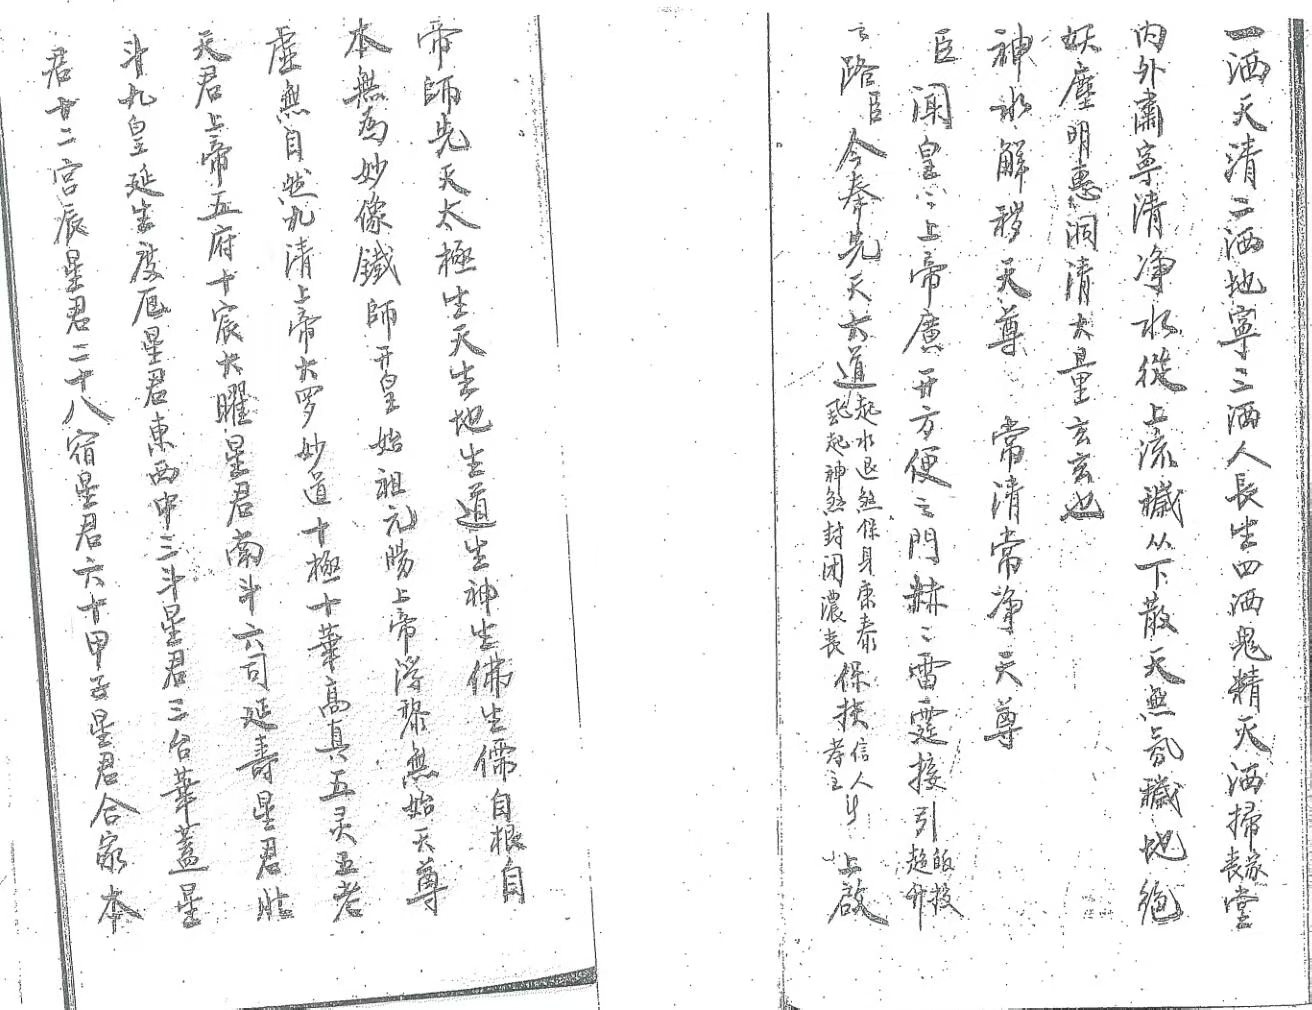 一洒天清二洒地寧三洒人長生四洒鬼精灭洒掃家喪堂
内外肅寧清净水從上流穢从下散天無氛穢地絶
妖塵明惠洞清大量玄玄也
神水解穢天尊　常清常净天尊
臣聞皇〻上帝廣开方便之門赫〻雷霆接引皈投超升
之路臣今奉先天六道起水退煞保身康泰起神煞封闭濃喪保扶信人孝之　上啟
帝師先天太極生天生地生道生神生佛生儒自根自
本無為妙像鐵師开皇始祖元賜上帝浮黎無始天尊
虛無自然九清上帝大罗妙道十極十華高真五灵五老
天君上帝五府十宸大曜星君南斗六司延壽星君北
斗九皇延生度厄星君東西中三斗星君三台華蓋星
君十二宮辰星君二十八宿星君六十甲子星君合家本